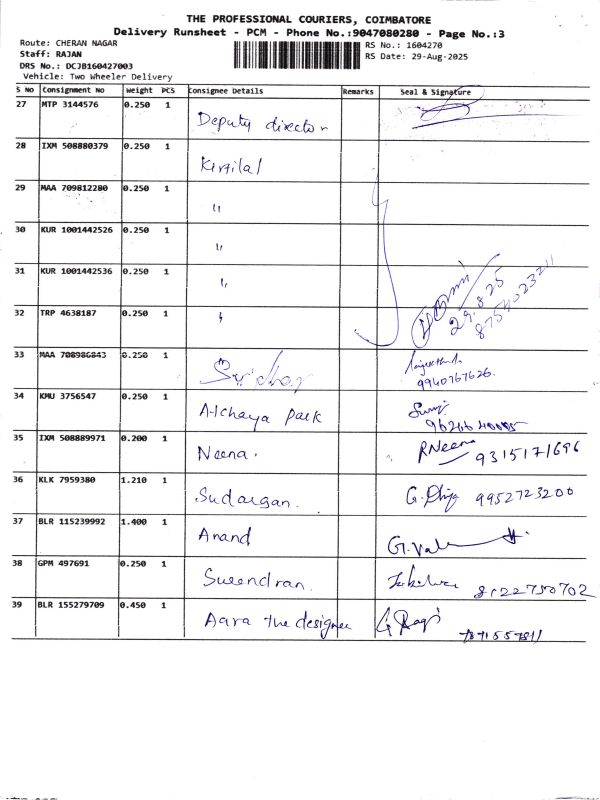 THE PROFESSIONAL COURIERS, COIMBATORE
Delivery Runsheet - PCM - Phone No.:9047080280 - Page No.:3
Route: CHERAN NAGAR
RS No.: 1604270
Staff: RAJAN
RS Date: 29-Aug-2025
DRS No.: DCJB160427003
Vehicle: Two Wheeler Delivery
S No Consignment No Weight PCS Consignee Details Remarks Seal & Signature
27 MTP 3144576 0.250 1 Deputy director
28 IXM 508880379 0.250 1 Kirtilal
29 MAA 709812280 0.250 1 "
30 KUR 1001442526 0.250 1 "
31 KUR 1001442536 0.250 1 "
29.8.25
32 TRP 4638187 0.250 1 "
33 MAA 708986843 0.250 1 Sridhar
9940767626
34 KMU 3756547 0.250 1 Atchaya Park
35 IXM 508889971 0.200 1 Neena. RNeena 9315171696
36 KLK 7959380 1.210 1 Sudargan. G. Dhiya 9952723200
37 BLR 115239992 1.400 1 Anand
38 GPM 497691 0.250 1 Surendran. 8122750702
39 BLR 155279709 0.450 1 Aara the designer